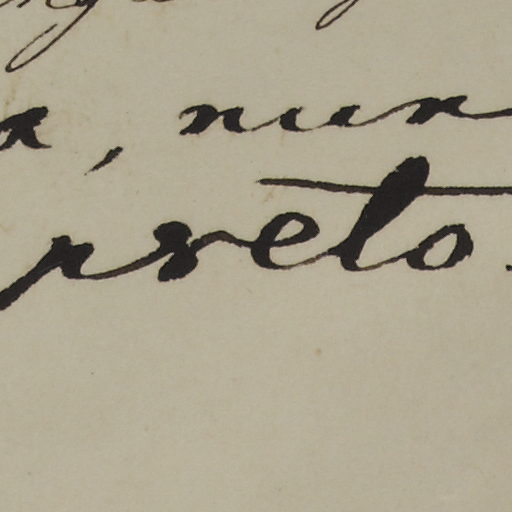 a, nun
preto.